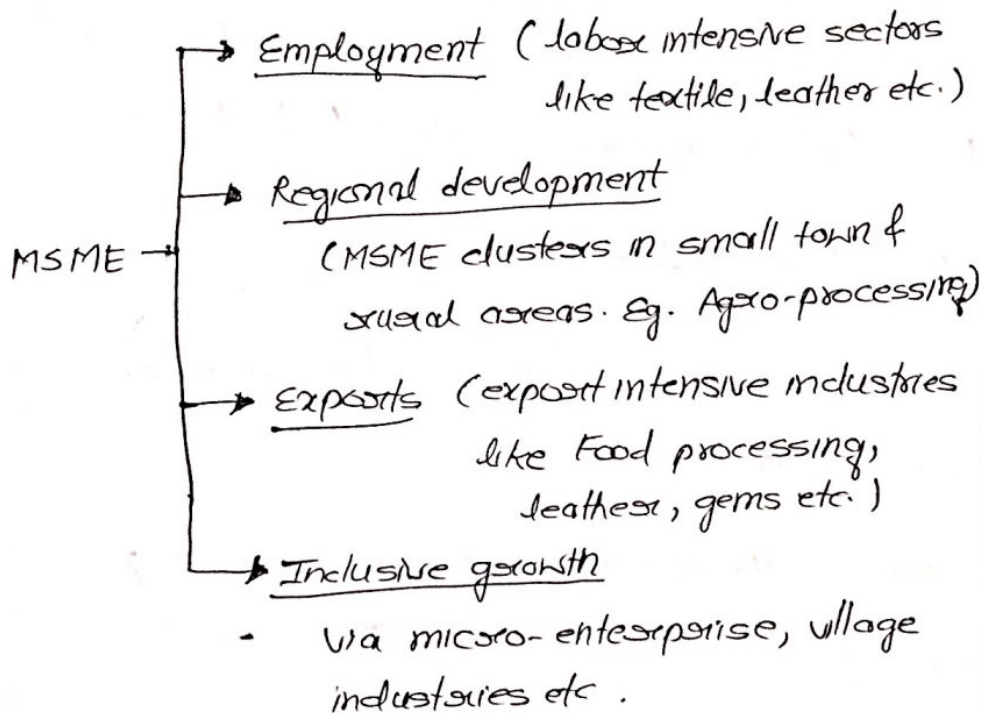 Employment (labour intensive sectors
like textile, leather etc.)
Regional development
MSME
(MSME clusters in small town &
rural areas. Eg. Agro-processing)
Exports (export intensive industries
like Food processing,
leather, gems etc.)
Inclusive growth
- via micro-enterprise, village
industries etc.